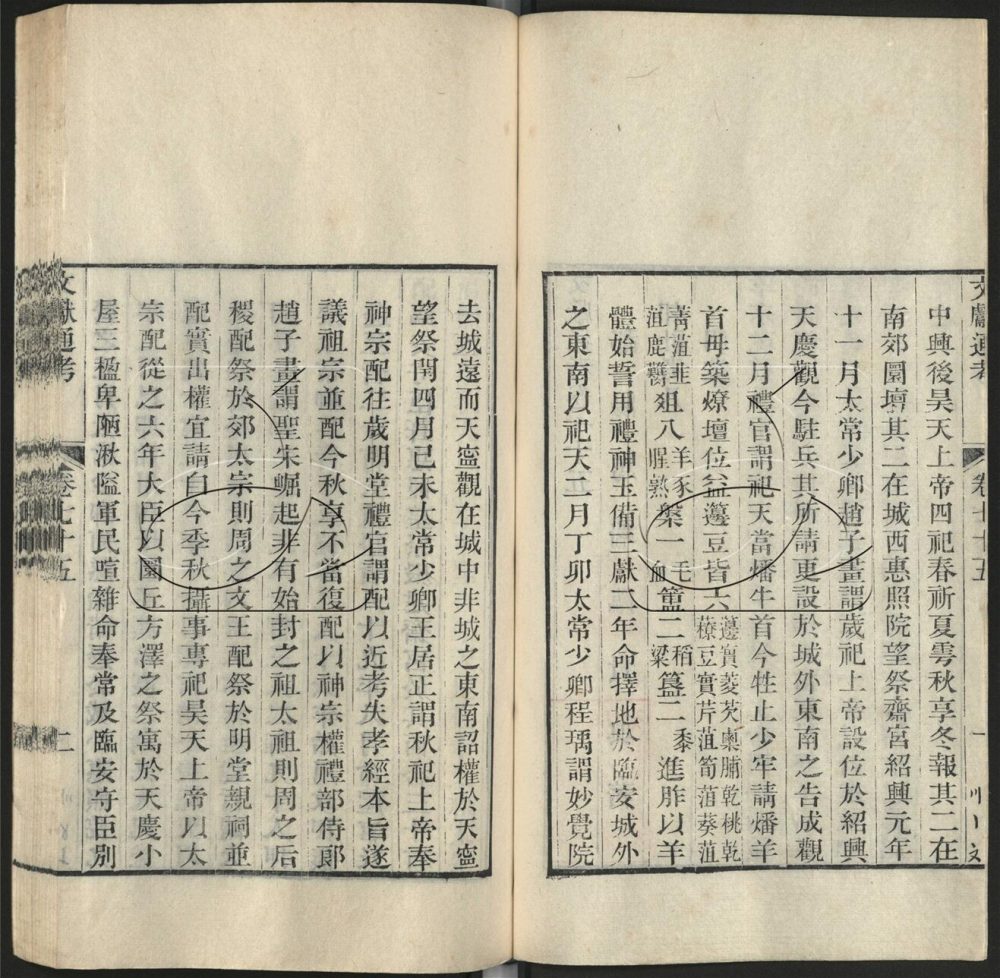 文獻通考 卷七十五 一
中興後昊天上帝四祀春祈夏雩秋享冬報其二在
南郊圜壇其二在城西惠照院望祭齋宮紹興元年
十一月太常少卿趙子畫謂歲祀上帝設位於紹興
天慶觀今駐兵其所請更設於城外東南之告成觀
十二月禮官謂祀天當燔牛首今牲止少牢請燔羊
首毋築燎壇位並籩豆皆六籩實菱芡㮚脯乾桃乾
䕩豆實芹菹筍菹葵菹
菁菹韭
菹鹿臡俎八羊豕
腥熟槃一毛
血簠二稻
粱簋二黍
進胙以羊
體始誓用禮神玉備三獻二年命擇地於臨安城外
之東南以祀天二月丁卯太常少卿程瑀謂妙覺院
去城遠而天寧觀在城中非城之東南詔權於天寧
望祭閏四月己未太常少卿王居正謂秋祀上帝奉
神宗配往歲明堂禮官謂配以近考失孝經本旨遂
議祖宗並配今秋享不當復配以神宗權禮部侍郞
趙子畫謂聖宋崛起非有始封之祖太祖則周之后
稷配祭於郊太宗則周之文王配祭於明堂親祠並
配實出權宜請自今季秋攝事專祀昊天上帝以太
宗配從之六年大臣以圜丘方澤之祭寓於天慶小
屋三楹卑陋湫隘軍民喧雜命奉常及臨安守臣別
文獻通考 卷七十五 二